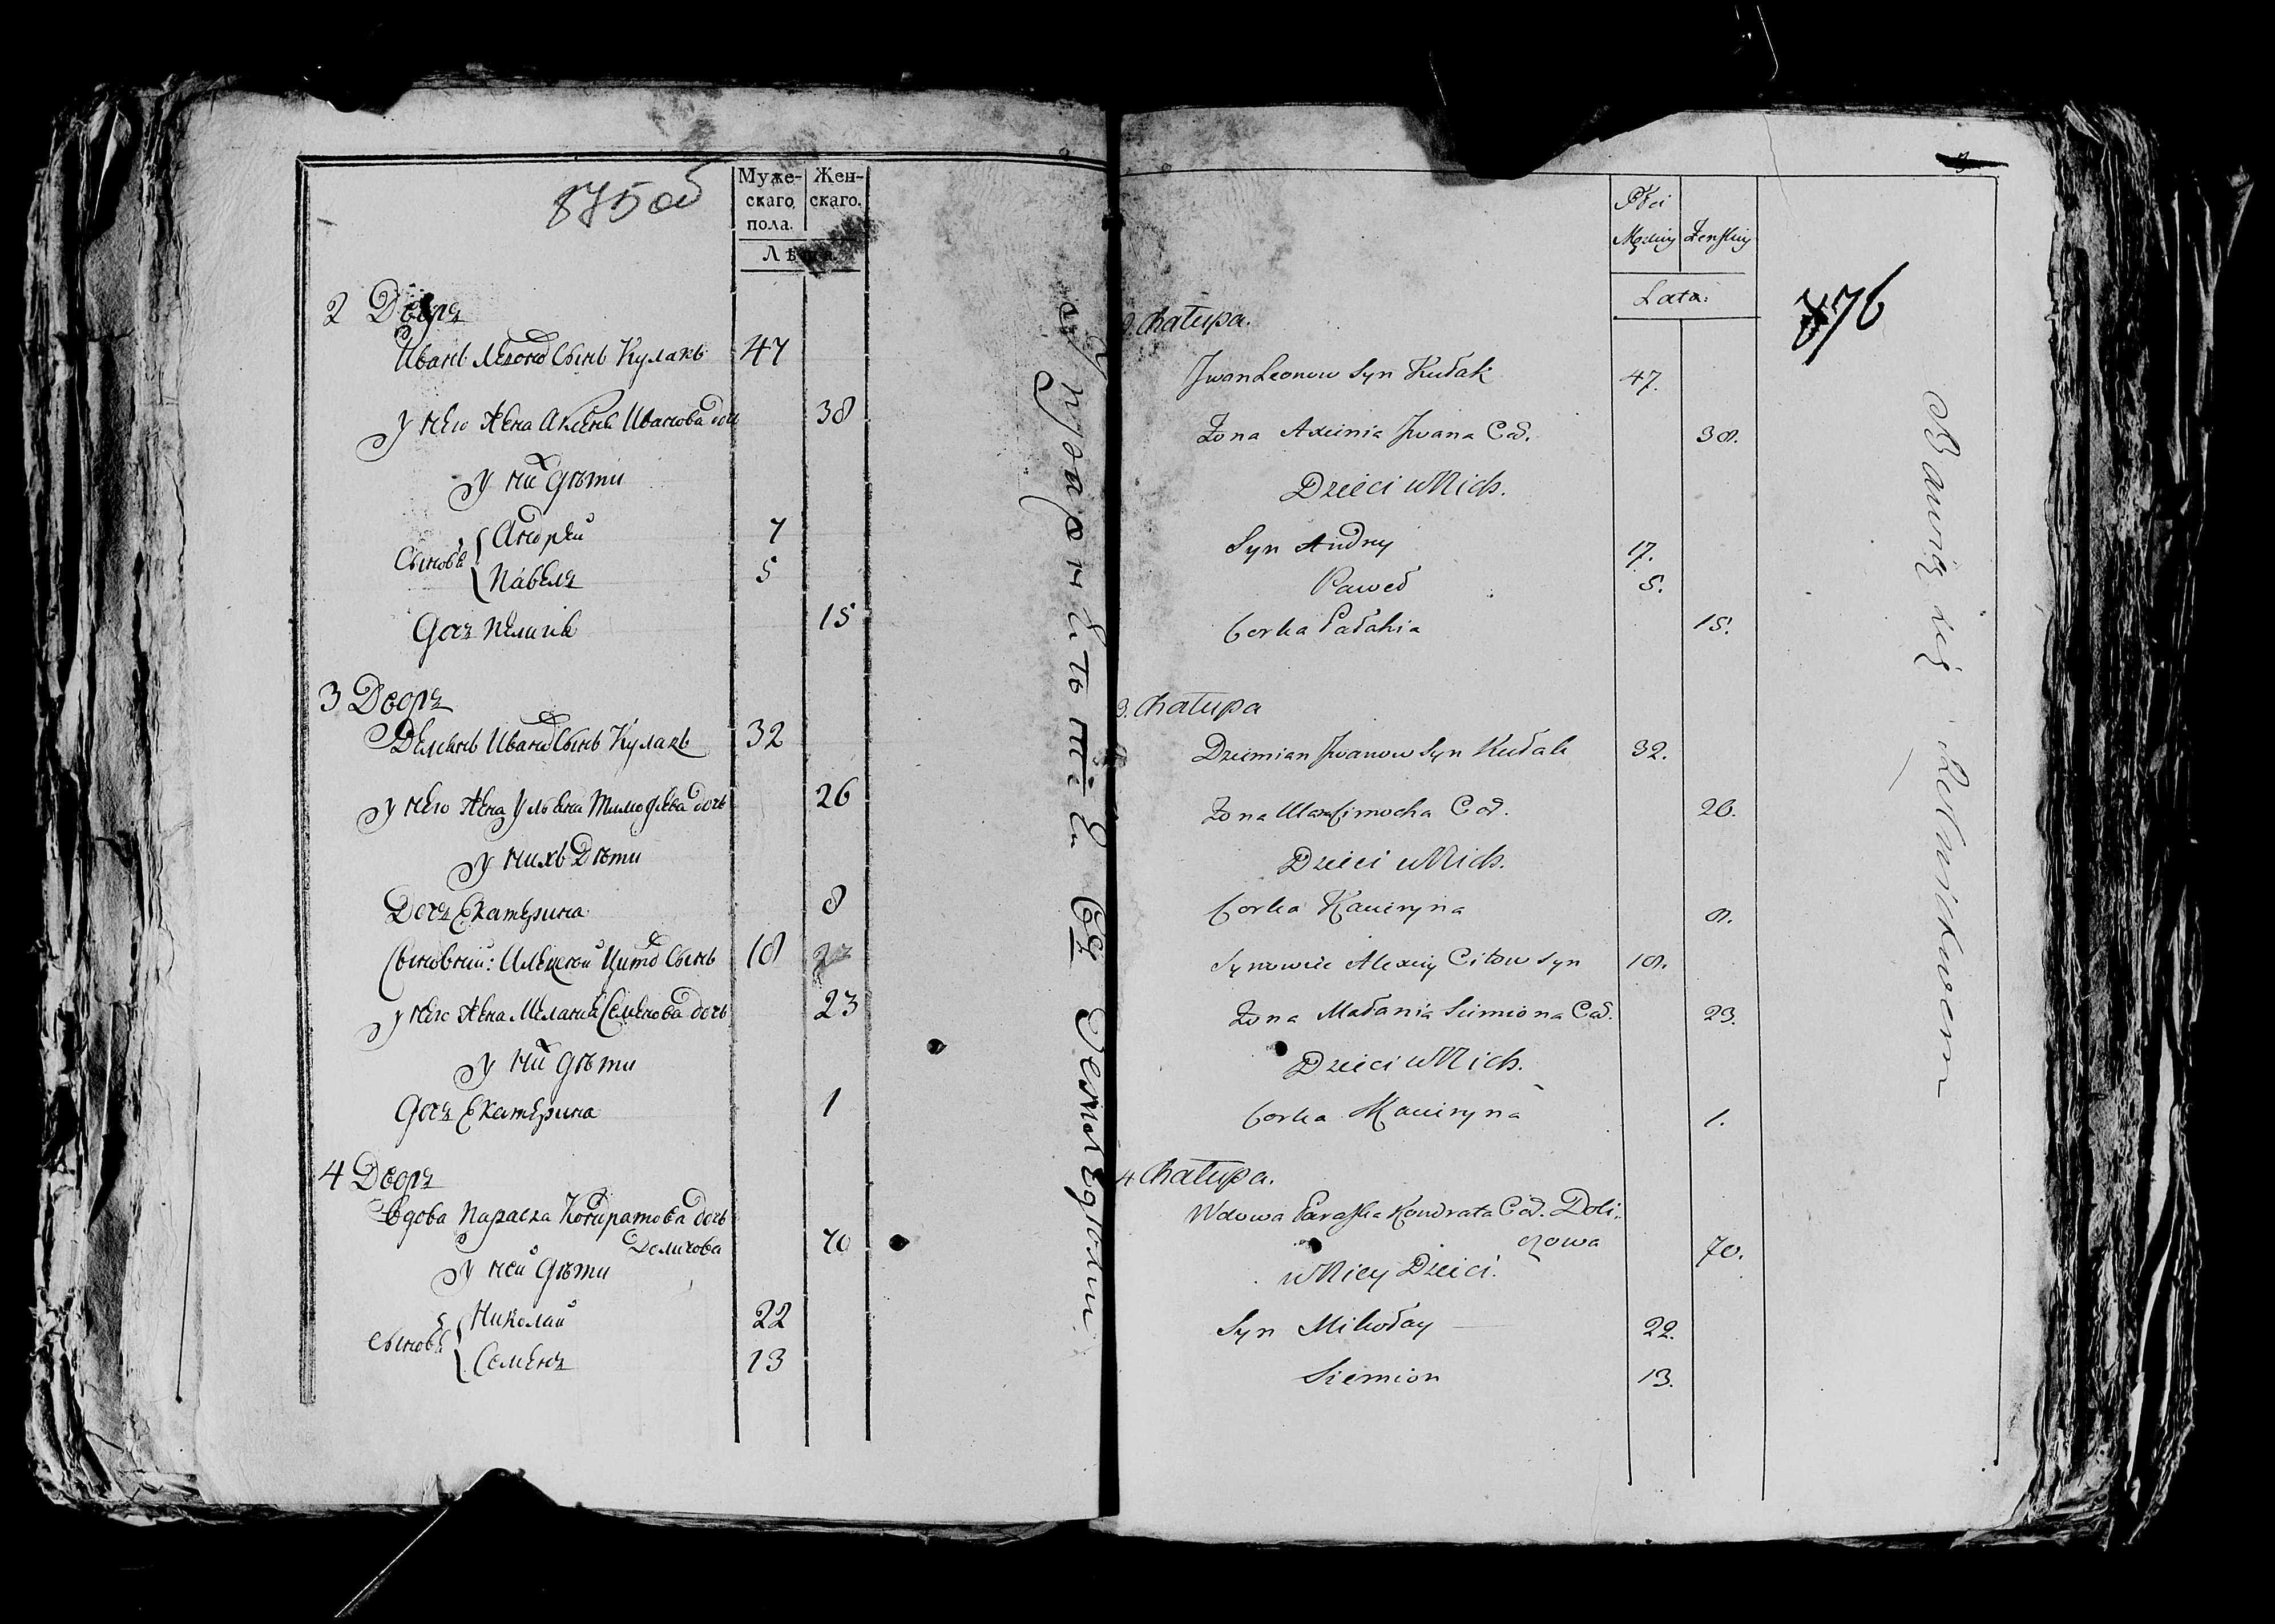 875 об
Муже-
скаго
пола.
Жен-
скаго.
Лѣта
2 Дворъ
Иванъ Леоновъ Сынъ Кулакъ 47
у него жена Аксенья Иванова дочь 38
у нихъ дѣти
Сыновья Андрей 7
Павелъ 5
дочь Пелагия 15
3 Дворъ
Демьянъ Ивановъ Сынъ Кулакъ 32
у него жена Ульяна Тимофеева дочь 26
у нихъ Дѣти
Дочъ Екатерина 8
Алексей Титовъ Сынъ 18
у него жена Меланья Семенова дочь 23
у нихъ дѣти
дочъ Екатерина 1
4 Дворъ
Вдова Параска Кондратова дочь
70
у ней дѣти
Сыновья Николай 22
Семенъ 13
876
Płci
Męzkiey Zenskiey
Lata:
2. Chałupa.
Jwan Leonow Syn Kułak 47.
Zona Axcinia Jwana Cór. 38.
Dzieci u Nich.
Syn Andrey 17.
Paweł 5.
Corka Pałahia 15.
3. Chałupa
Dziemian Jwanow Syn Kułak 32.
Zona Cór. 26.
Dzieci u Nich.
Corka Kacieryna 8.
Synowiec Alexiey Citow Syn 18.
Zona Małania Siemiona Cór. 23.
Dzieci u Nich.
Corka Kacieryna 1.
4 Chałupa.
Wdowa Paraska Kondrata Cór. Doli-
czowa 70.
u Niey Dzieci.
Syn Mikołay 22.
Siemion 13.